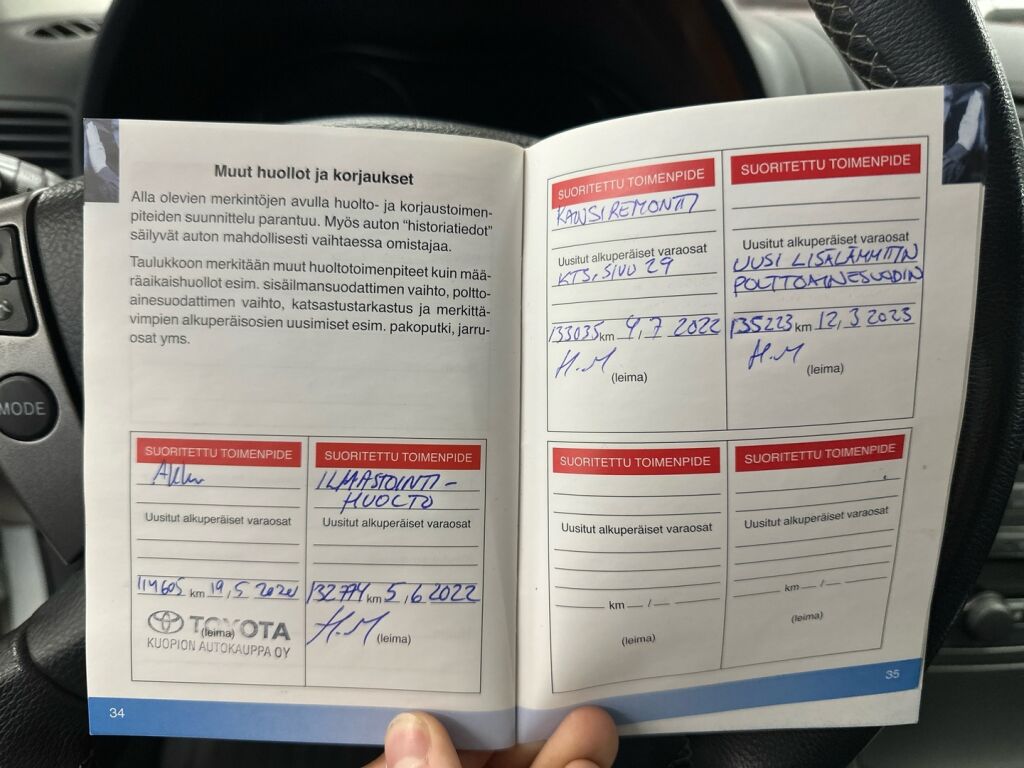 Muut huollot ja korjaukset
Alla olevien merkintöjen avulla huolto- ja korjaustoimen-
piteiden suunnittelu parantuu. Myös auton “historiatiedot”
säilyvät auton mahdollisesti vaihtaessa omistajaa.
Taulukkoon merkitään muut huoltotoimenpiteet kuin mää-
räaikaishuollot esim. sisäilmansuodattimen vaihto, poltto-
ainesuodattimen vaihto, katsastustarkastus ja merkittä-
vimpien alkuperäisosien uusimiset esim. pakoputki, jarru-
osat yms.
SUORITETTU TOIMENPIDE
Akku
Uusitut alkuperäiset varaosat
114605 km 19,5 2020
(leima)
TOYOTA
KUOPION AUTOKAUPPA OY
SUORITETTU TOIMENPIDE
ILMASTOINTI-
HUOLTO
Uusitut alkuperäiset varaosat
132774 km 5,6 2022
H.M (leima)
34
SUORITETTU TOIMENPIDE
KANSIREMONTTI
Uusitut alkuperäiset varaosat
KTS. SIVU 29
133035 km 9,7 2022
H.M (leima)
SUORITETTU TOIMENPIDE
Uusitut alkuperäiset varaosat
UUSI LISÄLÄMMITIN
POLTTOAINESUODIN
135223 km 12,3 2023
H.M (leima)
SUORITETTU TOIMENPIDE
Uusitut alkuperäiset varaosat
km /
(leima)
SUORITETTU TOIMENPIDE
Uusitut alkuperäiset varaosat
km /
(leima)
35
MODE